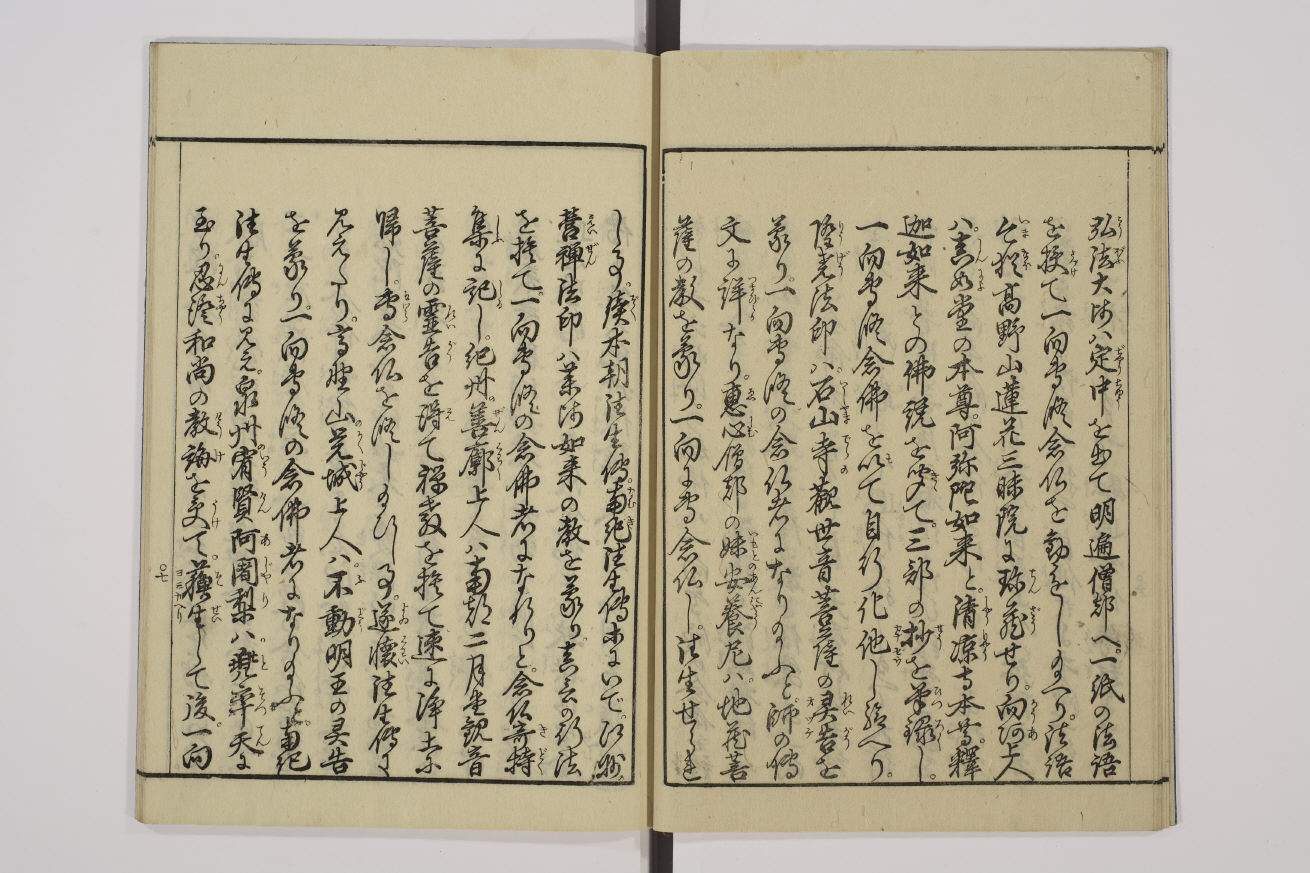 弘法大師ハ定中を出て明遍僧都へ。一紙の法語
を授て一向専修念仏を勧をし給へり。法語
今猶高野山蓮花三昧院に珍蔵せり。向阿上人
ハ。真如堂の本尊。阿弥陀如来と。清凉寺本尊。釋
迦如来との佛説を聞て。三部の抄を筆録し。
一向専修念佛を以て自行化他し給へり。
隆堯法印ハ。石山寺。観世音菩薩の霊告を
蒙り。一向専修の念仏者になりたまふと。師の傳
文に詳なり。恵心僧都の妹安養尼ハ。地蔵菩
薩の教を蒙り。一向に専念仏し。往生せられ
しる。續本朝往生傳。南紀往生傳等にいで。江州
營禅法印ハ薬師如来の教を蒙り。真言の行法
を捨て。一向専修の念佛者になれりと。念仏奇特
集に記し。紀州善廓上人ハ南都二月堂観音
菩薩の霊告を得て禅教を捨て速に浄土に
帰し。専念仏を修し給ひし事。遂懐往生傳に
見えたり。高野山覚城上人ハ。不動明王の霊告
を蒙り。一向専修の念佛者になりたまふと。南紀
往生傳に見え。泉州宥賢阿闍梨ハ。兜率天に
至り。忍澂和尚の教誨を受て。蘓生して後。一向
〇七